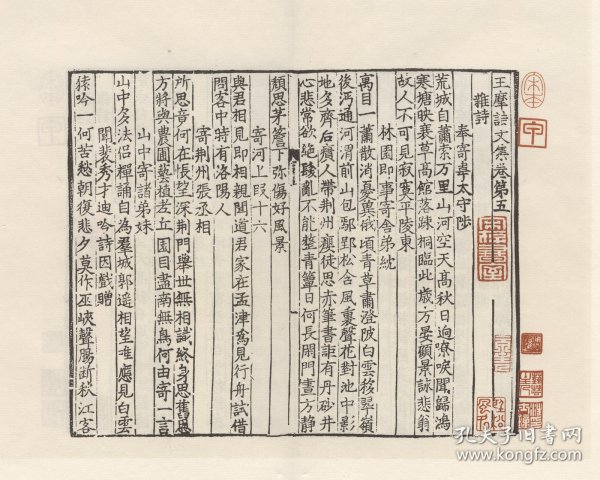 王摩詰文集卷第五
雜詩
奉寄韋太守陟
荒城自蕭索万里山河空天髙秋日迥嘹唳聞歸鴻
寒塘映衰草髙館落疎桐臨此歲方晏顧景詠悲翁
故人不可見寂寞平陵東
林園即事寄舍弟紞
寓目一蕭散消憂冀俄頃青草肅澄陂白雲移翠嶺
後沔通河渭前山包鄢郢松含風裏聲花對池中影
地多齊后瘧人帶荊州癭徒思赤筆書詎有丹砂井
心悲常欲絶髪亂不能整青簟日何長閑門晝方静
頹思茅簷下弥傷好風景
寄河上段十六
與君相見即相親聞道君家在孟津為見行舟試借
問客中時有洛陽人
寄荊州張丞相
所思竟何在悵望深荊門舉世無相識終身思舊恩
方將與農圃藝植老丘園目盡南無鳥何由寄一言
山中寄諸弟妹
山中多法侣禪誦自為羣城郭遥相望唯應見白雲
聞裴秀才迪吟詩因戲贈
猿吟一何苦愁朝復悲夕莫作巫峽聲腸断秋江客
孔夫子旧书网
www.kongfz.com